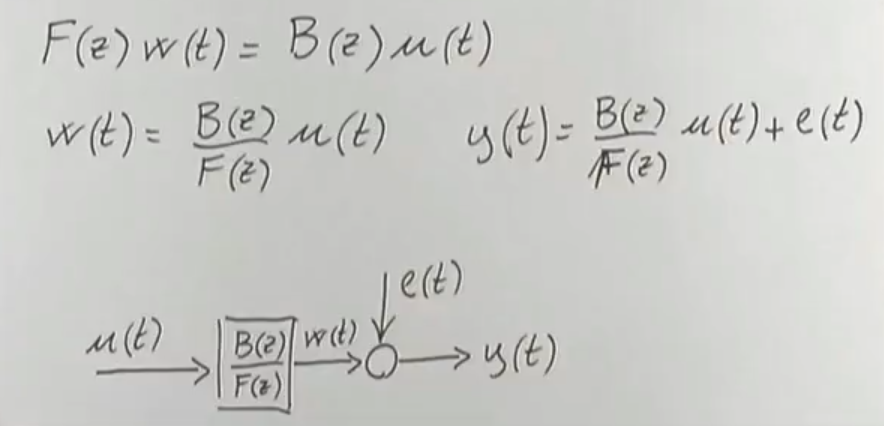 F(z) w(t) = B(z) u(t)
w(t) = B(z)/F(z) u(t)    y(t) = B(z)/F(z) u(t) + e(t)
e(t)
u(t) B(z)/F(z) w(t) y(t)